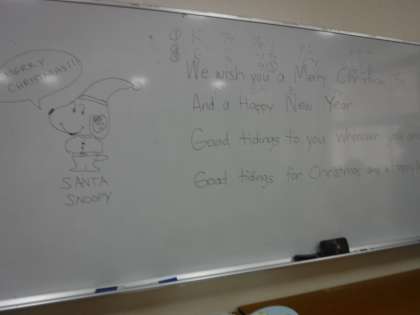 MERRY
CHRISTMAS!!!
SANTA
SNOOPY
We wish you a Merry Christmas
And a Happy New Year
Good tidings to you Wherever you
Good tidings for Christmas and a Happy